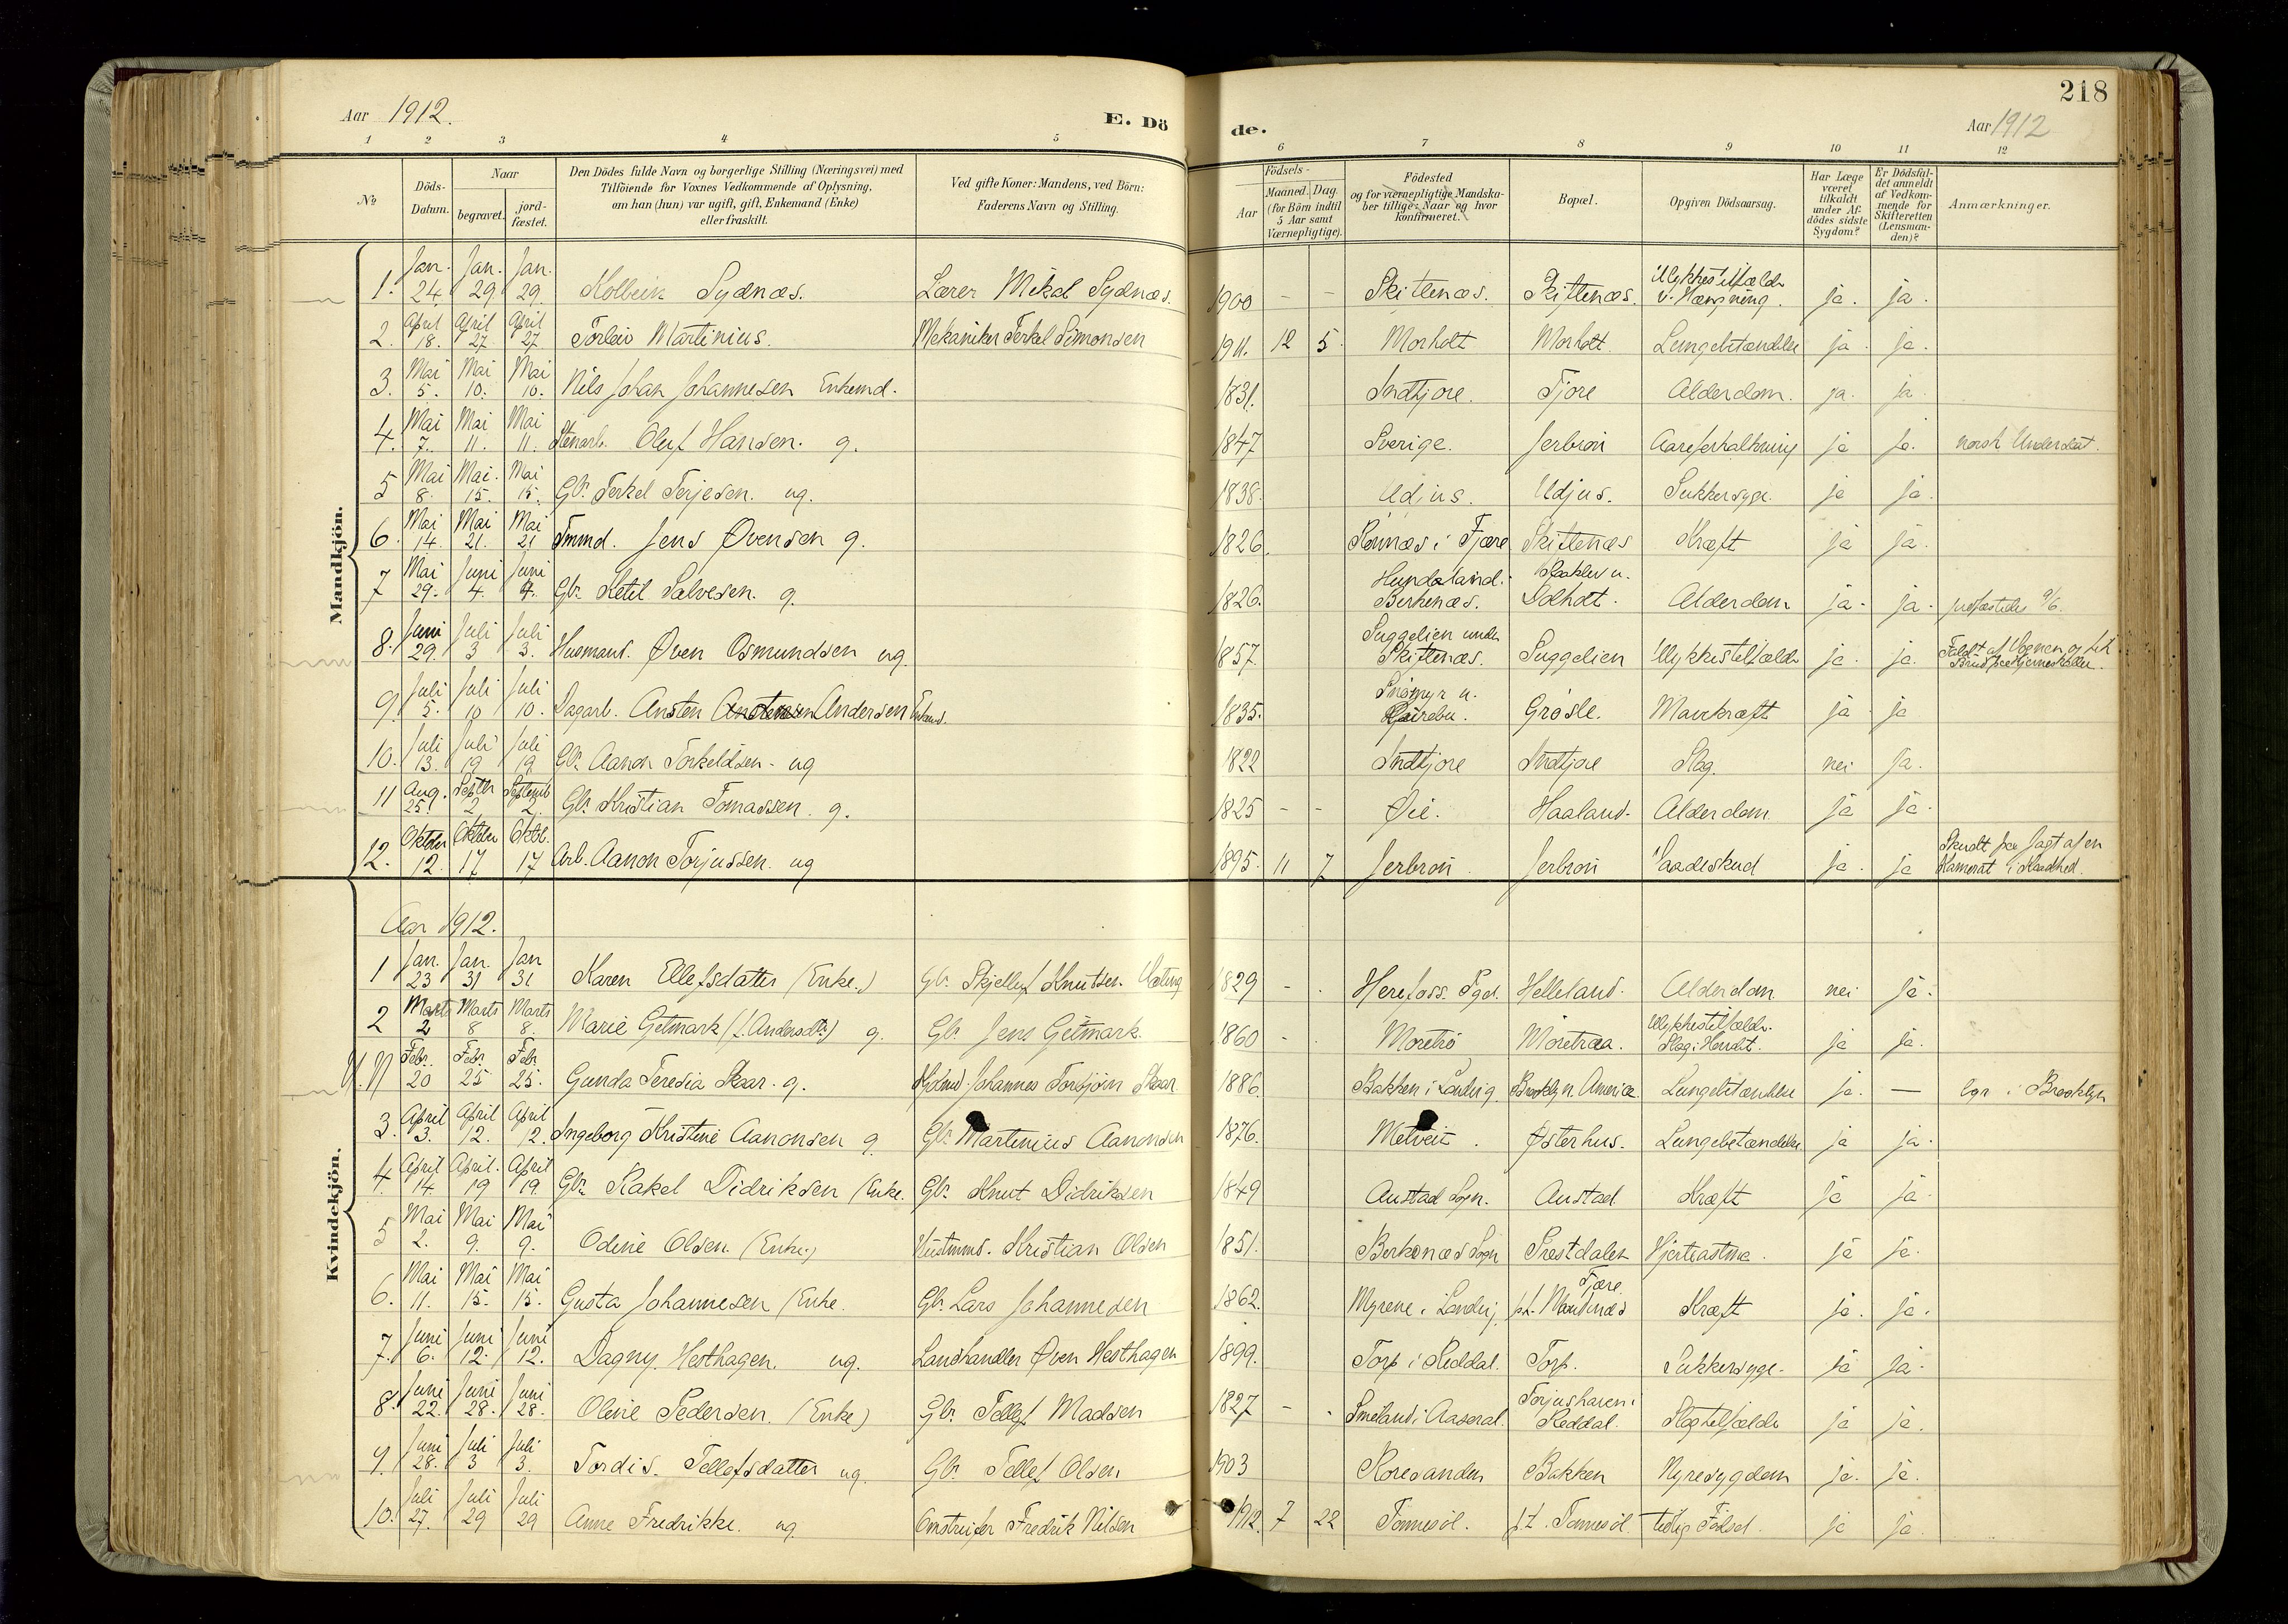 218
Aar 1912.
E. Dö
de.
Aar 1912
1 2 3 4 5 6 7 8 9 10 11 12
№
Döds-Datum.
Naar
begravet.
jord-fæstet.
Den Dödes fulde Navn og borgerlige Stilling (Næringsvei) med
Tilföiende for Voxnes Vedkommende af Oplysning,
om han (hun) var ugift, gift, Enkemand (Enke)
eller fraskilt.
Ved gifte Koner: Mandens, ved Börn:
Faderens Navn og Stilling.
Födsels-
Aar
Maaned. Dag.
(for Börn indtil
5 Aar samt
Værnepligtige).
Födested
og for værnepligtige Mandska-
ber tillige: Naar og hvor
konfirmeret.
Bopæl.
Opgiven Dödsaarsag.
Har Læge
været
tilkaldt
under Af-
dödes sidste
Sygdom?
Er Dödsfal-
det anmeldt
af Vedkom-
mende for
Skifteretten
(Lensman-
den)?
Anmærkninger.
Mandkjön.
1. Jan. 24. Jan. 29. Jan. 29. Kolbein Sydnæs. Lærer Mikal Sydnæs. 1900 - - Skiftenæs. Skiftenæs. Ulykkestilfælde v. Hængning. ja. ja.
2. April 18. April 27 April 27 Torleiv Martinius. Mekaniker Terkel Simonsen 1911. 12 5. Morholt Morholt Lungebetændelse ja. ja.
3. Mai 5. Mai 10. Mai 10. Nils Johan Johannesen Enkemd. 1831. Indtjore. Tjore Alderdom. ja. ja
4. Mai 7. Mai 11. Mai 11. Stenarb. Oluf Hansen. g. 1847 Sverige. Jerbron Aareforkalkning ja ja. norsk Undersaat.
5 Mai 8. Mai. 15. Mai 15. Gbr. Terkel Terjesen. ug. 1838. Udjus. Udjus. Sukkersyge. ja ja.
6. Mai 14. Mai 21. Mai 21 Tmmd. Jens Øvensen g. 1826. Rønnæs i Fjære Skiftenæs Kræft ja ja.
7 Mai 29. Juni 4. Juni 4. Gbr. Ketil Salvesen. g. 1826. Hundsland. Birkenæs. u. Dolholt. Alderdom ja. ja. jordfæstedes 9/6.
8. Juni 29. Juli 3 Juli 3. Husmand. Øven Osmundsen ug. 1857. Suggelien under Skiftenæs. Suggelien Ulykkestilfælde ja. ja. Faldt af Vognen og fik Brud paa Hjerneskallen.
9. Juli 5. Juli 10 Juli 10. Dagarb. Ansten Anstensen Andersen Enkemd. 1835. u. Grøsle. Mavekræft ja ja
10. Juli 13. Juli 19 Juli 19 Gbr. Aanon Torkeldsen - ug 1822 Indtjore Indtjore Slag. nei ja.
11 Aug. 25. Septbr 2 Septemb. 2. Gbr. Kristian Tomassen. g. 1825 - - Øie. Haaland. Alderdom ja ja.
12. Oktober 12. Oktober 17 Oktob. 17 Arb. Aanon Torjussen. ug 1895. 11 7 Jerbron. Jerbron Vaadeskud ja. ja Skudt paa Jagt af en Kamerat i Vaadhed.
Kvindekjön.
Aar 1912.
1 Jan. 23 Jan. 31 Jan 31 Karen Ellefsdatter (Enke.) Gbr. Skjellef Knutsen. 1829 - . Herefoss. Sgd. Helleland. Alderdom nei ja.
2 Marts 2 Marts 8 Marts 8. Marie Getmark (f. Andersdtr) g. Gbr Jens Getmark. 1860 - . Moretrø Moretraa. Ulykkestilfælde. Slag i Hovdet. ja ja.
U.N Febr. 20 Febr 25 Febr 25. Gunda Teresia Skaar. g. Johannes Torbjørn Skaar 1886. Bakken i Landvig. Brooklyn. America. Lungebetændelse ja. — bgr i Brooklyn
3. April 3. April 12. April 12. Ingeborg Kristine Aanonsen g. Gbr. Martinius Aanonsen 1876. Metveit. Østerhus. Lungebetændelse ja ja.
4. April 14. April. 19 April 19. Gbr. Rakel Didriksen (Enke. Gbr. Knut Didriksen 1849 Austad Sogn. Austad Kræft ja ja.
5 Mai 2. Mai 9. Mai 9. Odine Olsen. (Enke.) Husmnd. Kristian Olsen 1851. Birkenæs Sogn Prestdalen Hjerteastma. ja ja.
6. Mai 11. Mai 15. Mai 15. Gusta Johannesen (Enke. Gbr. Lars Johannesen 1862. Myrene i Landvig. p.t. Fjære Kræft ja. ja.
7. Juni 6. Juni 12. Juni 12. Dagny. Hesthagen. ug. Landhandler Øven Hesthagen 1899. Torp i Reddal. Torp. Sukkersyge. ja ja.
8. Juni 22. Juni 28. Juni 28. Oline Pedersen. (Enke) Gbr. Tellef Madsen 1827 - . Smeland i Aaseral. Torjushaven i Reddal. Slagtilfælde ja ja.
9. Juni 28. Juli 3 Juli 3. Tordis. Tellefsdatter ug. Gbr. Tellef Olsen 1903 Roresanden Bakken Nyresygdom ja. ja.
10. Juli 27. Juli 29 Juli 29 Anne Fredrikke. ug Omstreifer Fredrik Nilsen 1912. 7 22 Tonnesøl. p.t. Tonnesøl. tidlig Fødsel. ja ja.